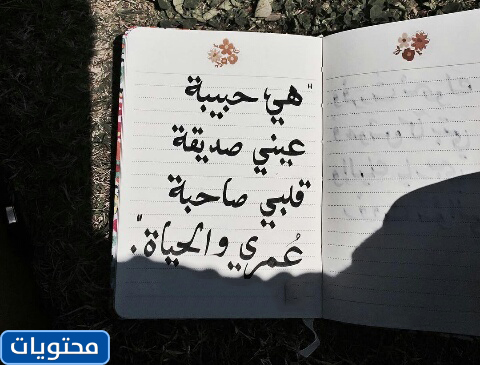 "هي حبيبة
عيني صديقة
قلبي صاحبة
عُمري والحياة".
محتويات